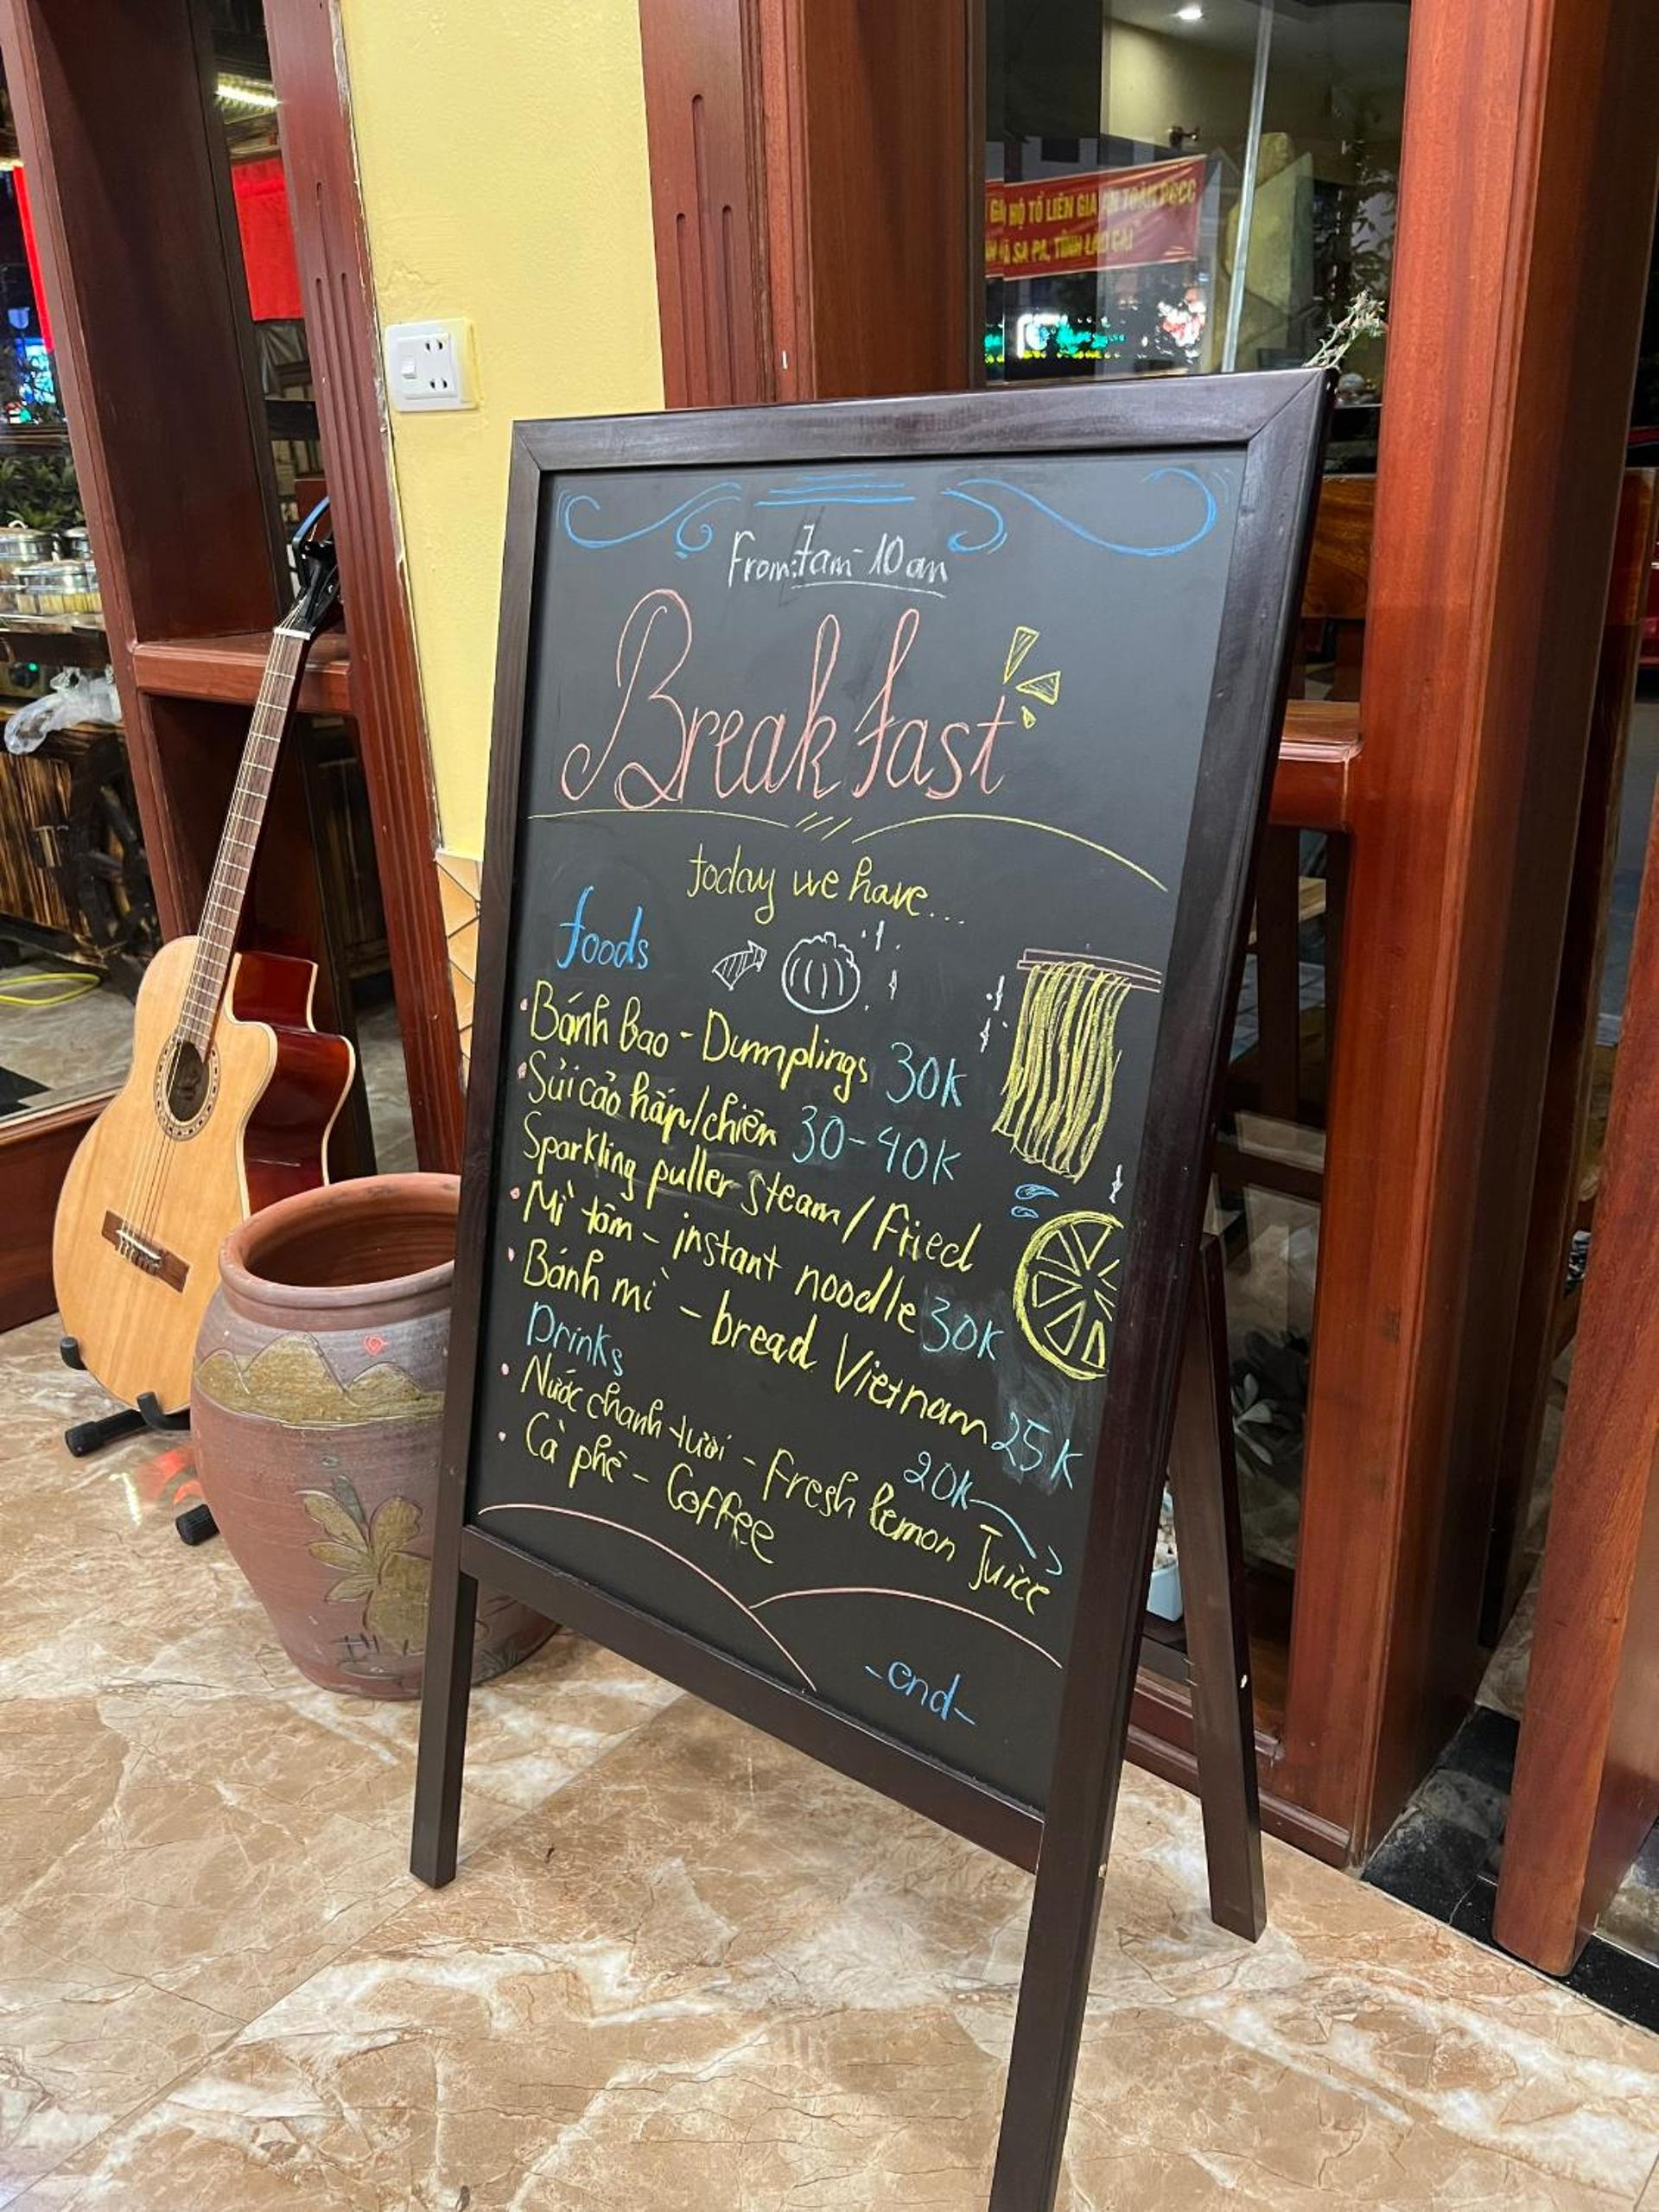 GIA HỘ TỔ LIÊN GIA AN TOÀN PCCC
SA PA, TỈNH LÀO CAI
From: 7am - 10am
Breakfast
today we have...
foods
Bánh bao - Dumplings 30K
Sủi cảo hấp/chiên 30-40K
Sparkling puller steam / Fried
Mì tôm - instant noodle 30K
Bánh mì - bread Vietnam 25K
Drinks
20K
Nước chanh tươi - Fresh lemon Juice
Cà phê - Coffee
-end-